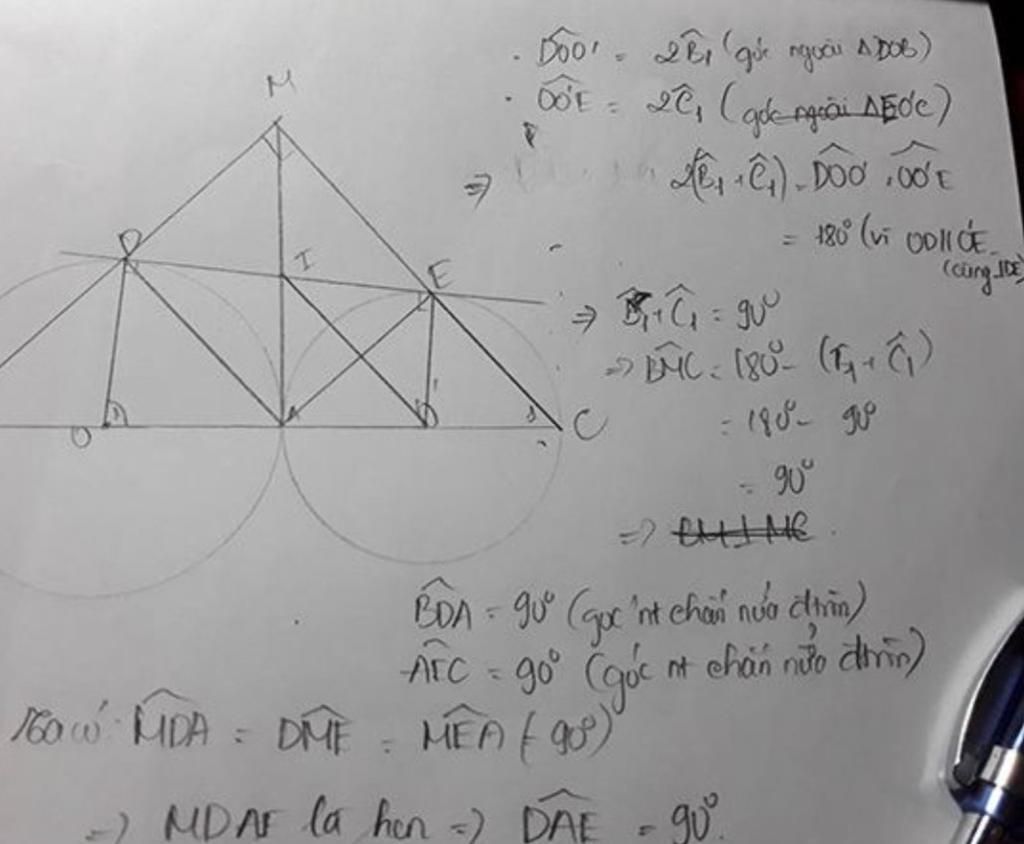 M
D
I
E
O
1
A
O'
1
C
. D̂OO' = 2B̂₁ (góc ngoài ΔDOB)
. ÔO'E = 2Ĉ₁ (góc ngoài ΔEO'C)
⇒ 2(B̂₁ + Ĉ₁) = D̂OO' + ÔO'E
= 180° (vì OD//O'E
(cùng ⊥DE)
⇒ B̂₁ + Ĉ₁ = 90°
⇒ B̂MC = 180° - (B̂₁ + Ĉ₁)
= 180° - 90°
= 90°
⇒
B̂DA = 90° (góc nt chắn nửa đtròn)
ÂEC = 90° (góc nt chắn nửa đtròn)
có M̂DA = D̂ME = M̂EA (= 90°)
⇒ MDAE là hcn ⇒ D̂AE = 90°.